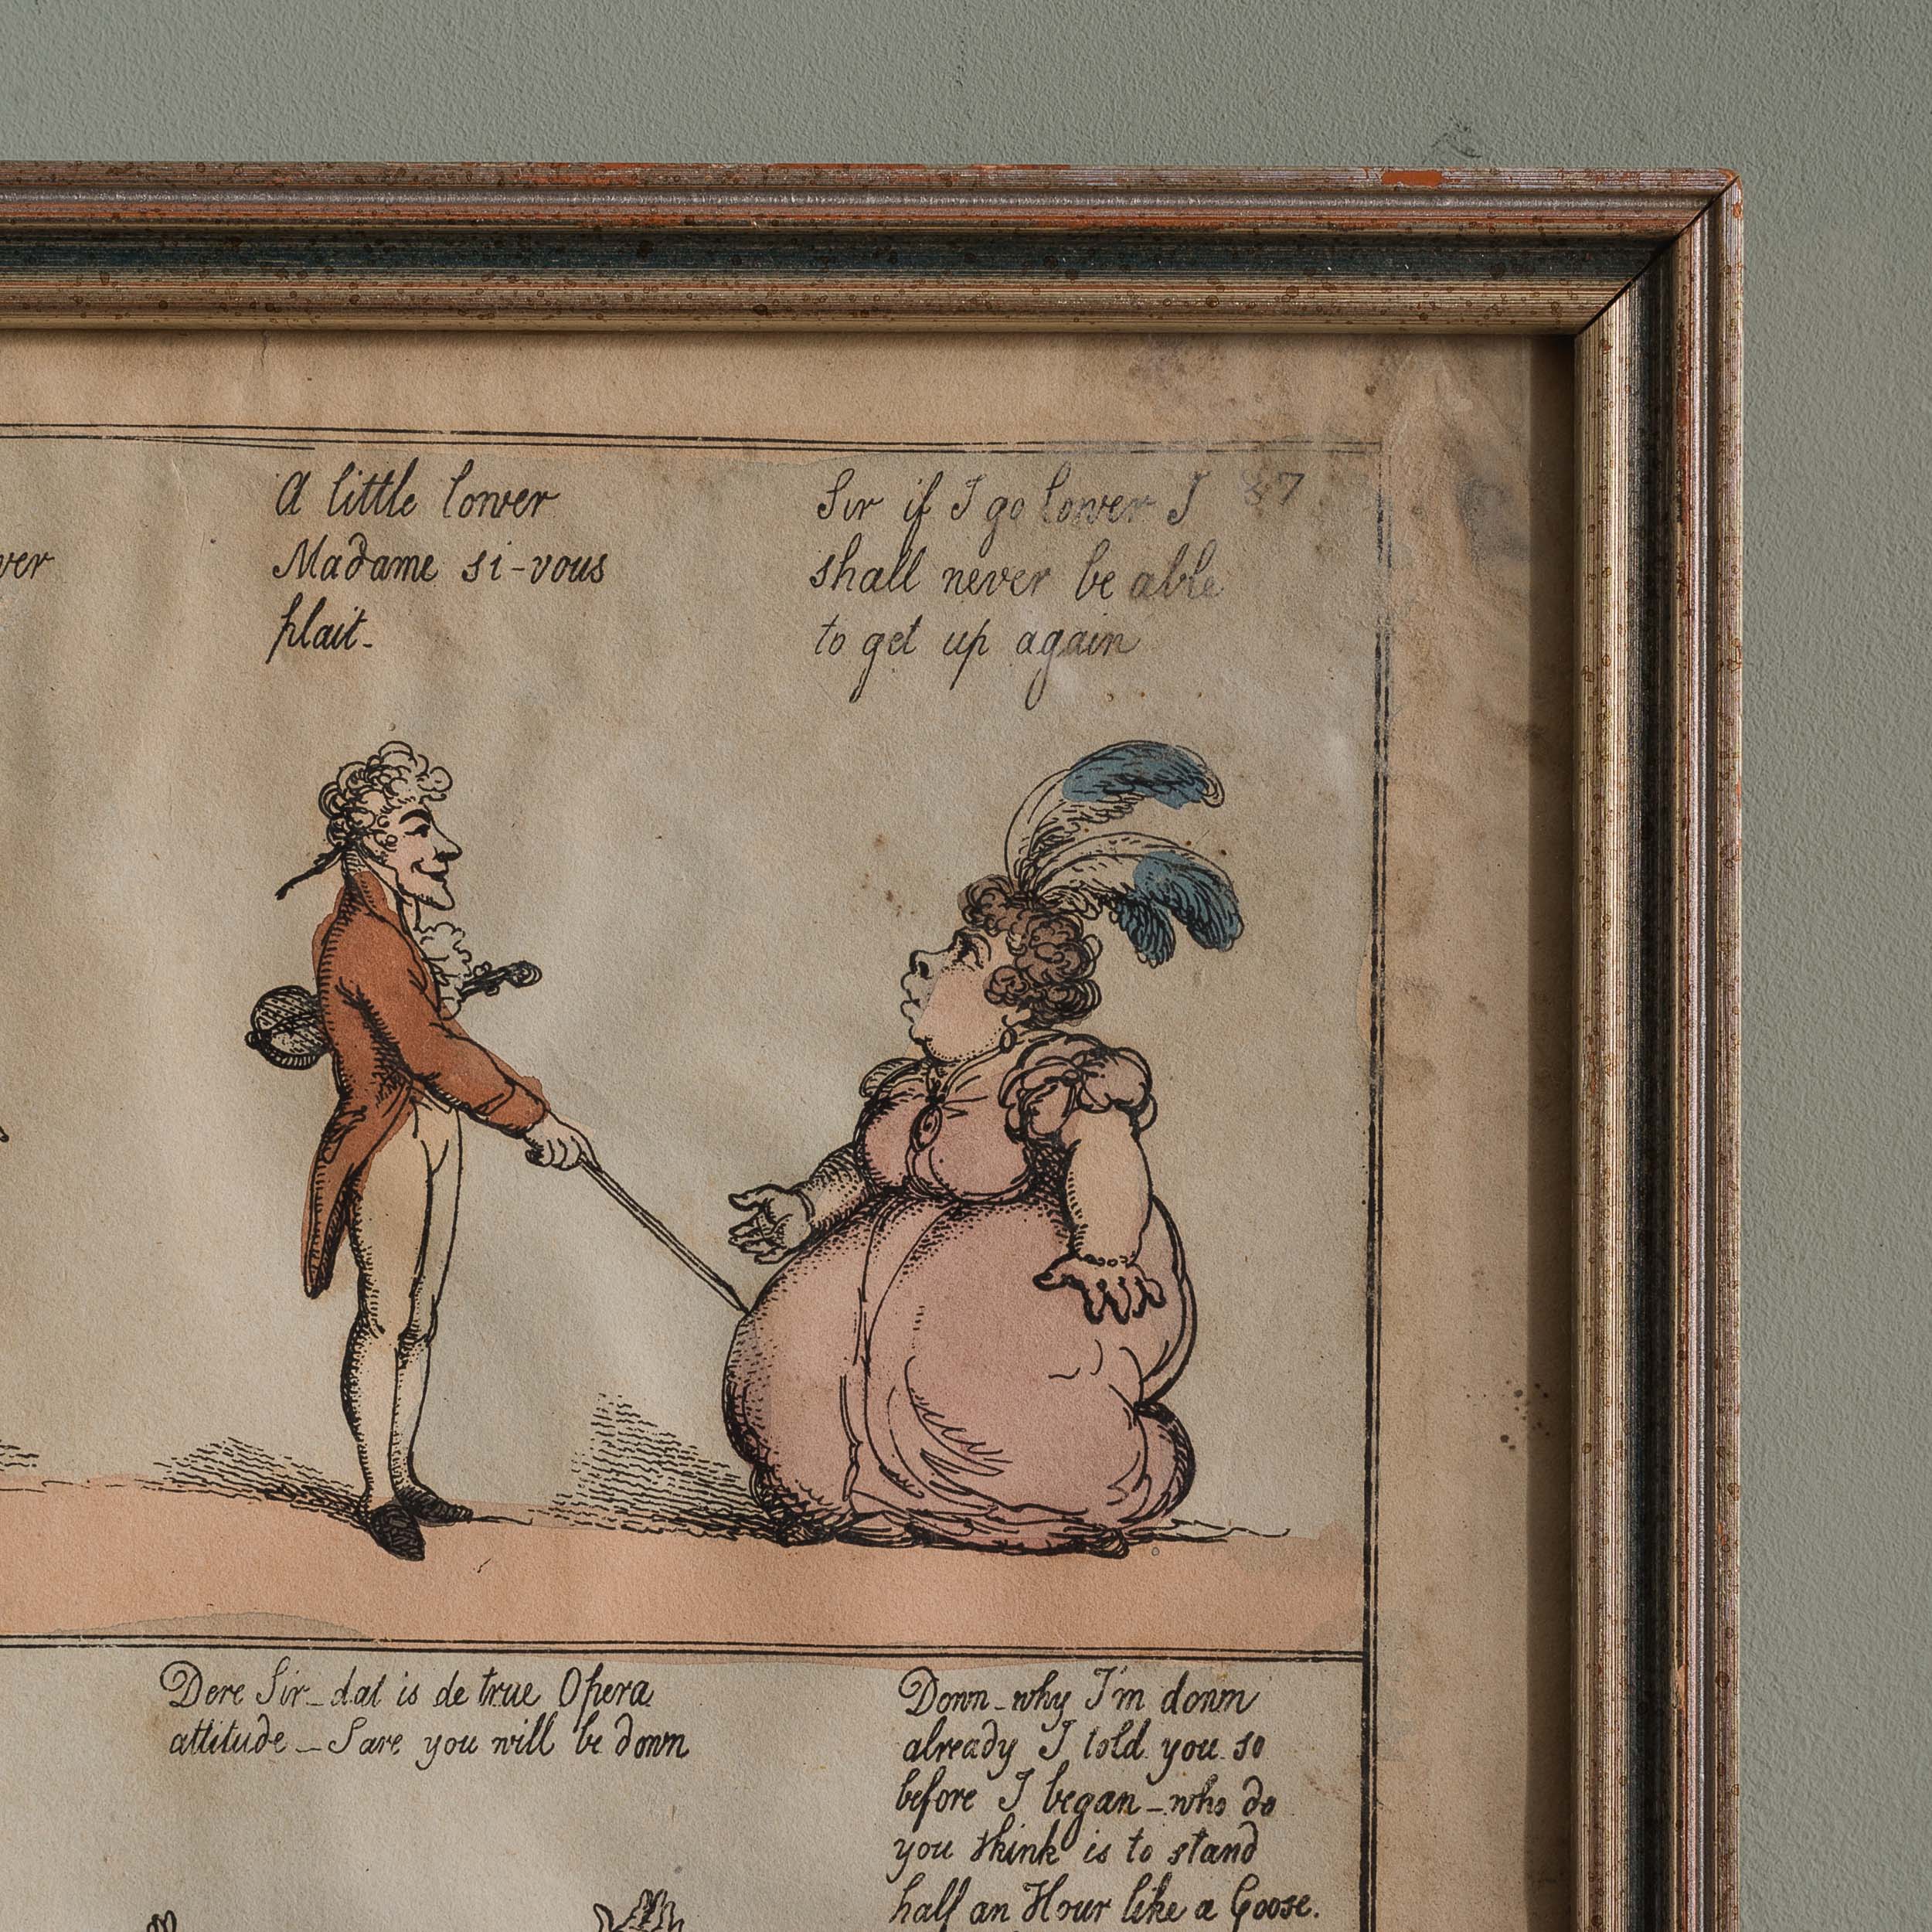 ver
A little lower
Madame si-vous
plait-
Sir if I go lower I
shall never be able
to get up again
87
Dere Sir_dat is de true Opera
attitude_Sare you will be down
Down_why I'm down
already I told you so
before I began_who do
you think is to stand
half an Hour like a Goose.